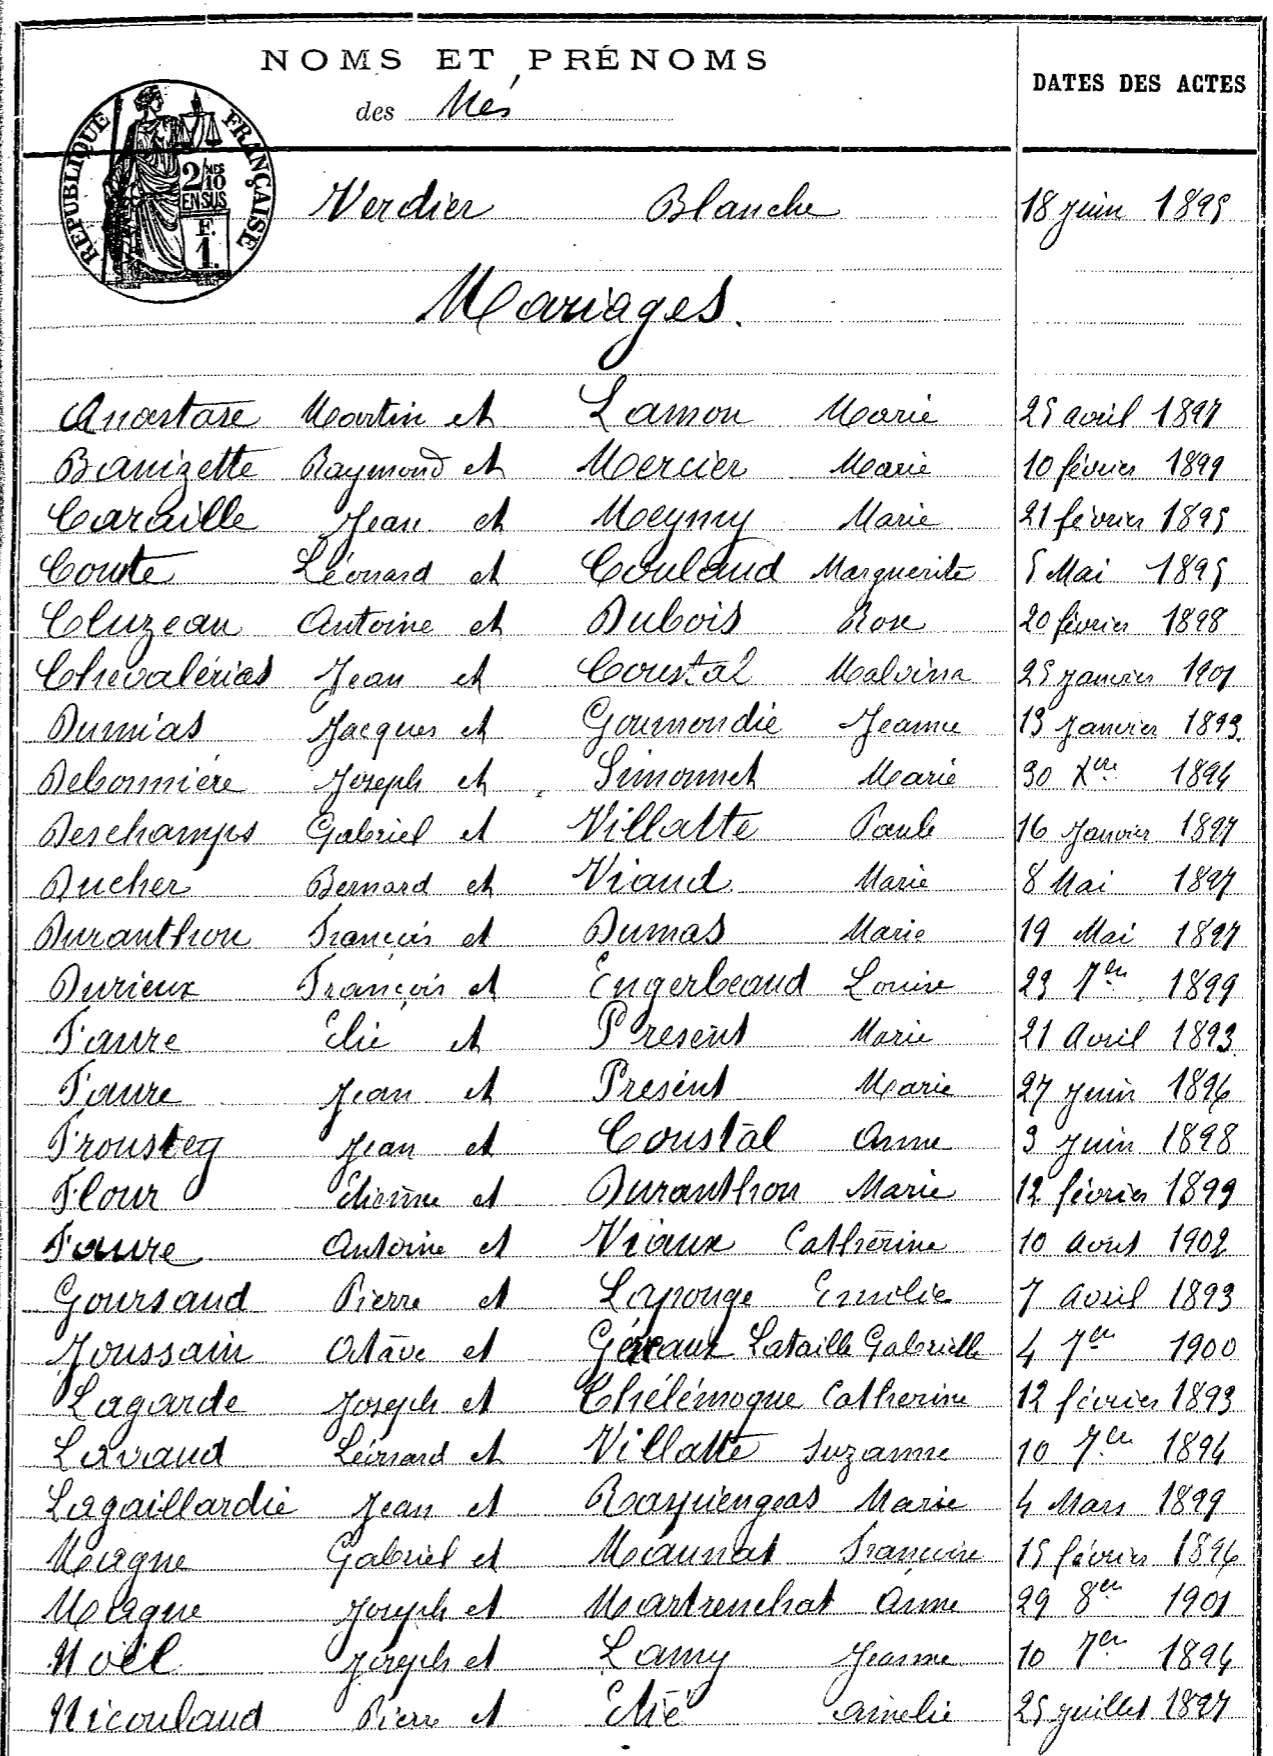 NOMS ET PRÉNOMS
des Nés
DATES DES ACTES
RÉPUBLIQUE FRANÇAISE
2/10 MES
EN SUS
F.
1.
Verdier Blanche 18 juin 1895
Mariages.
Anastase Martin et Lamon Marie 25 avril 1897
Banizette Raymond et Mercier Marie 10 février 1899
Caraille Jean et Meymy Marie 21 février 1895
Comte Léonard et Coulaud Marguerite 5 Mai 1895
Cluzeau Antoine et Dubois Rose 20 février 1898
Chevalérias Jean et Coustal Malvina 25 janvier 1901
Dumias Jacques et Goumondie Jeanne 13 Janvier 1893.
Debonnière Joseph et Simonnet Marie 30 Xbre 1894
Deschamps Gabriel et Villatte Paule 16 Janvier 1897
Ducher Bernard et Viaud Marie 8 Mai 1897
Duranthon François et Dumas Marie 19 Mai 1897
Durieux François et Engerbeaud Louise 23 7bre 1899
Faure Elie et Présent Marie 21 Avril 1893.
Faure Jean et Présent Marie 27 Juin 1896
Froustey Jean et Coustal Anne 3 Juin 1898
Flour Etienne et Duranthon Marie 12 février 1899
Faure Antoine et Viaux Catherine 10 Août 1902
Goursaud Pierre et Lapouge Emilie 7 Avril 1893
Joussain Octave et Lataille Gabrielle 4 7bre 1900
Lagarde Joseph et Chélémoque Catherine 12 février 1893
Lavaud Léonard et Villatte Suzanne 10 7bre 1894
Lagaillardie Jean et Marie 4 Mars 1899
Magne Gabriel et Maunat Françoise 15 février 1896
Magne Joseph et Martrenchat Anne 29 8bre 1901
Noël Joseph et Lamy Jeanne 10 7bre 1894
Nicoulaud Pierre et Elie Amélie 25 juillet 1897